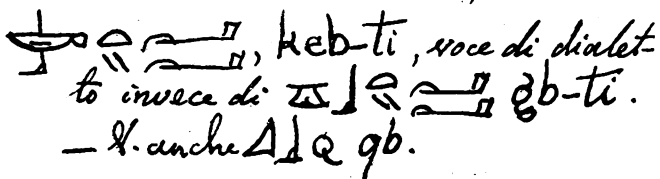 , keb-ti, voce di dialet-
to invece di gb-ti.
— V. anche qb.